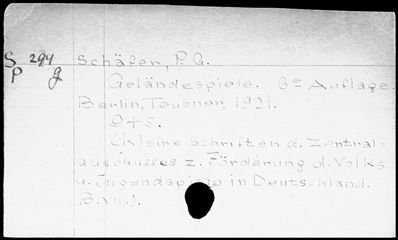 S 294 Schäfer, P. G.
P g
Geländespiele. 3e Auflage.
Berlin, Teubner, 1921.
94 S.
(Kleine Schriften d. Zentral-
auschusses z. Förderung d. Volks
u. Jugendspiele in Deutschland.
B. VIII.).